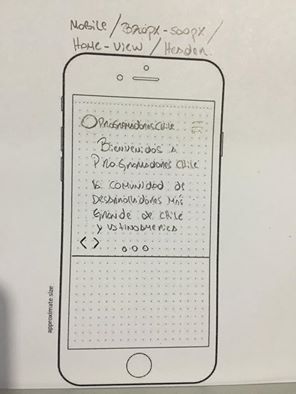 Mobile / 320px - 500px /
Home-View / Header.
ProgramadoresChile
Bienvenidos a
Programadores Chile
la comunidad de
Desarrolladores más
grande de Chile
y Latinoamerica
< >
approximate size